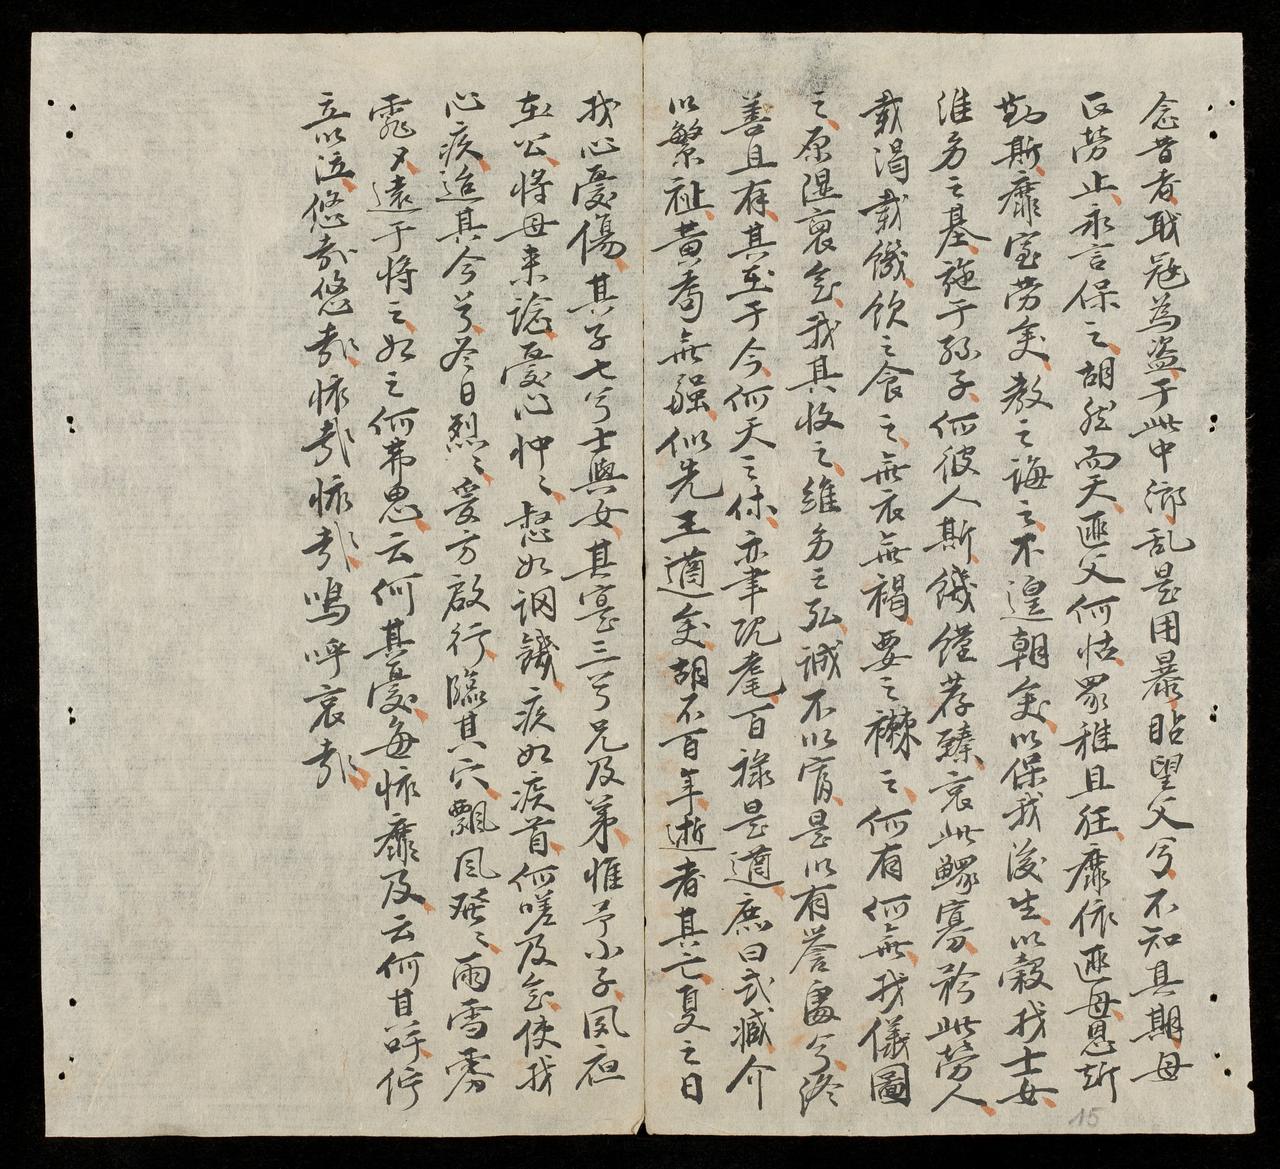 念昔者耿寇為盜于此中鄉乱是用暴眙望父兮不知其期母
曰勞止永言保之胡然而天匪父何怙眾稚且狂靡依匪母恩斯
勤斯靡室勞矣教之誨之不遑朝矣以保我後生以穀我士女
維身之基施于孫子何彼人斯饑饉荐臻哀此鰥寡矜此勞人
載渴載饑飲之食之無衣無褐要之襋之何有何無我儀圖
之原隰裒矣我其收之維身之弘誠不以富是以有譽處兮終
善且有其至于今何天之休亦聿既耄百祿是遒庶曰式臧介
以繁祉黃耇無疆似先王遒矣胡不百年逝者其亡夏之日
我心憂傷其子七兮士與女其室三兮兄及弟惟予小子夙夜
在公將母来諗憂心忡々惄如調饑疾如疾首何嗟及矣使我
心疾迨其今兮冬日烈々爰方啟行臨其穴飄風發々雨雪雰
霏夕遠于將之如之何弗思云何其憂每懷靡及云何其吁佇
立以泣悠哉悠哉懷哉懷哉嗚呼哀哉
15